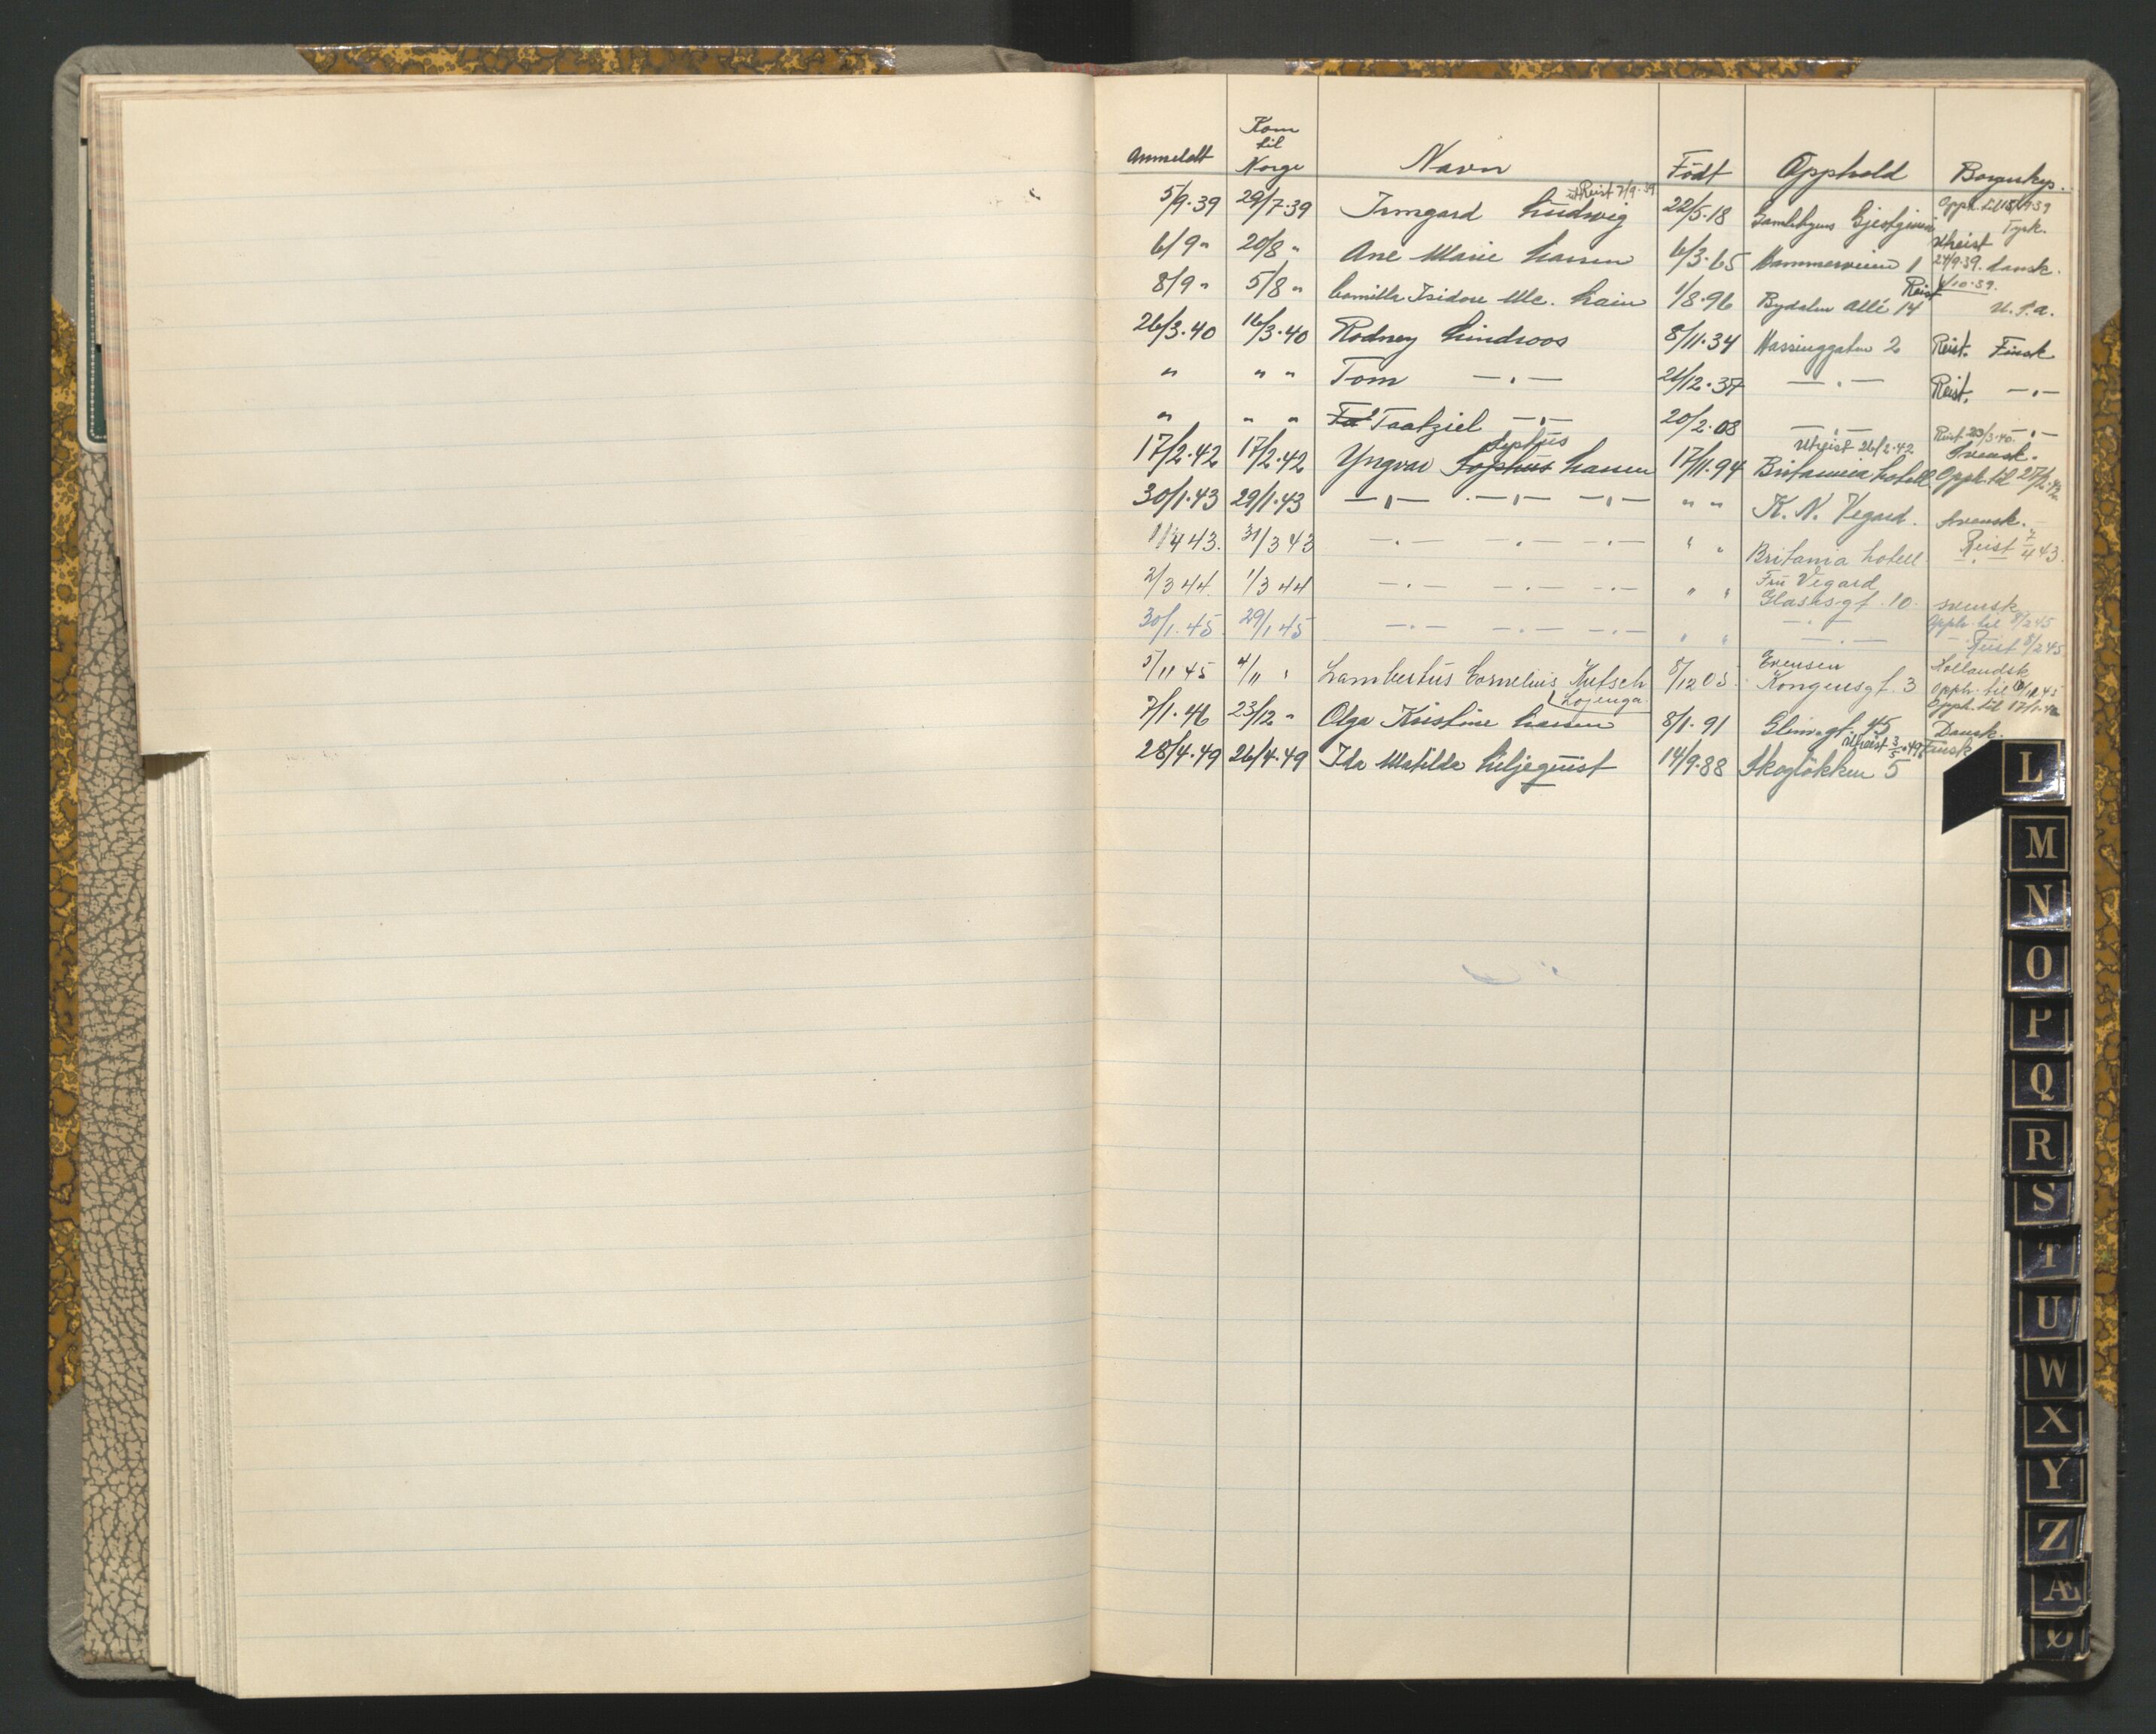 Anmeldt Kom til Norge Navn Født Opphold Borgerskp.
5/9.39 29/7.39 Irmgard Ludwig utReist 7/9.39 22/5.18 Gamlebyens Gjestgiveri Opph. til 15/9 39 Tysk.
6/9 " 20/8 " Ane Marie Larsen 6/3.65 Hammersveien 1 Utreist 24/9.39. Dansk.
8/9 " 5/8 " Camilla Isidore Mc. Lain 1/8.96 Bydalen Allé 14 Reist 1/10.39. U.S.A.
26/3.40 16/3.40 Rodney Lindroos 8/11.34 Nassinggaten 2 Reist. Finsk
" " " Tom —.— 21/12.37 —.— Reist. —.—
" " " Taatziel —.— 20/2.08 —.— Reist 23/3.40. —.—
17/2.42 17/2.42 Yngvar Sophus Sophus Larsen 17/11.94 Utreist 26/2.42 Britannia hotell Svensk. Opph. til 27/2.42
30/1.43 29/1.43 —"— —"— —"— " " K. N. Vegard. Svensk.
1/4 43. 31/3 43 —.— —.— —.— " " Britania hotell Reist 7/4 43. —.—
2/3 44. 1/3 44 —.— —.— —.— " " Fru Vegard Glassgt. 10. svensk
30/1.45 29/1 45 —.— —.— —.— " " —.— Opph. til 8/2 45
—.— —. Reist 8/2 45
5/11 45 4/11 " Lambertus Cornelius Kutsch Lojenga 8/12 05. Evensen Kongensgt. 3 Hollandsk Opph. til
7/1.46 23/12 " Olga Kristine Larsen 8/1.91 Glimsgt. 45 Opph. til 17/1.46 Dansk.
28/4.49 26/4.49 Ida Matilda Liljequist 14/9.88 Skogløkken 5 Utreist 3/5.49 Finsk
L
M
N
O
P
Q
R
S
T
U
W
X
Y
Z
Æ
Ø